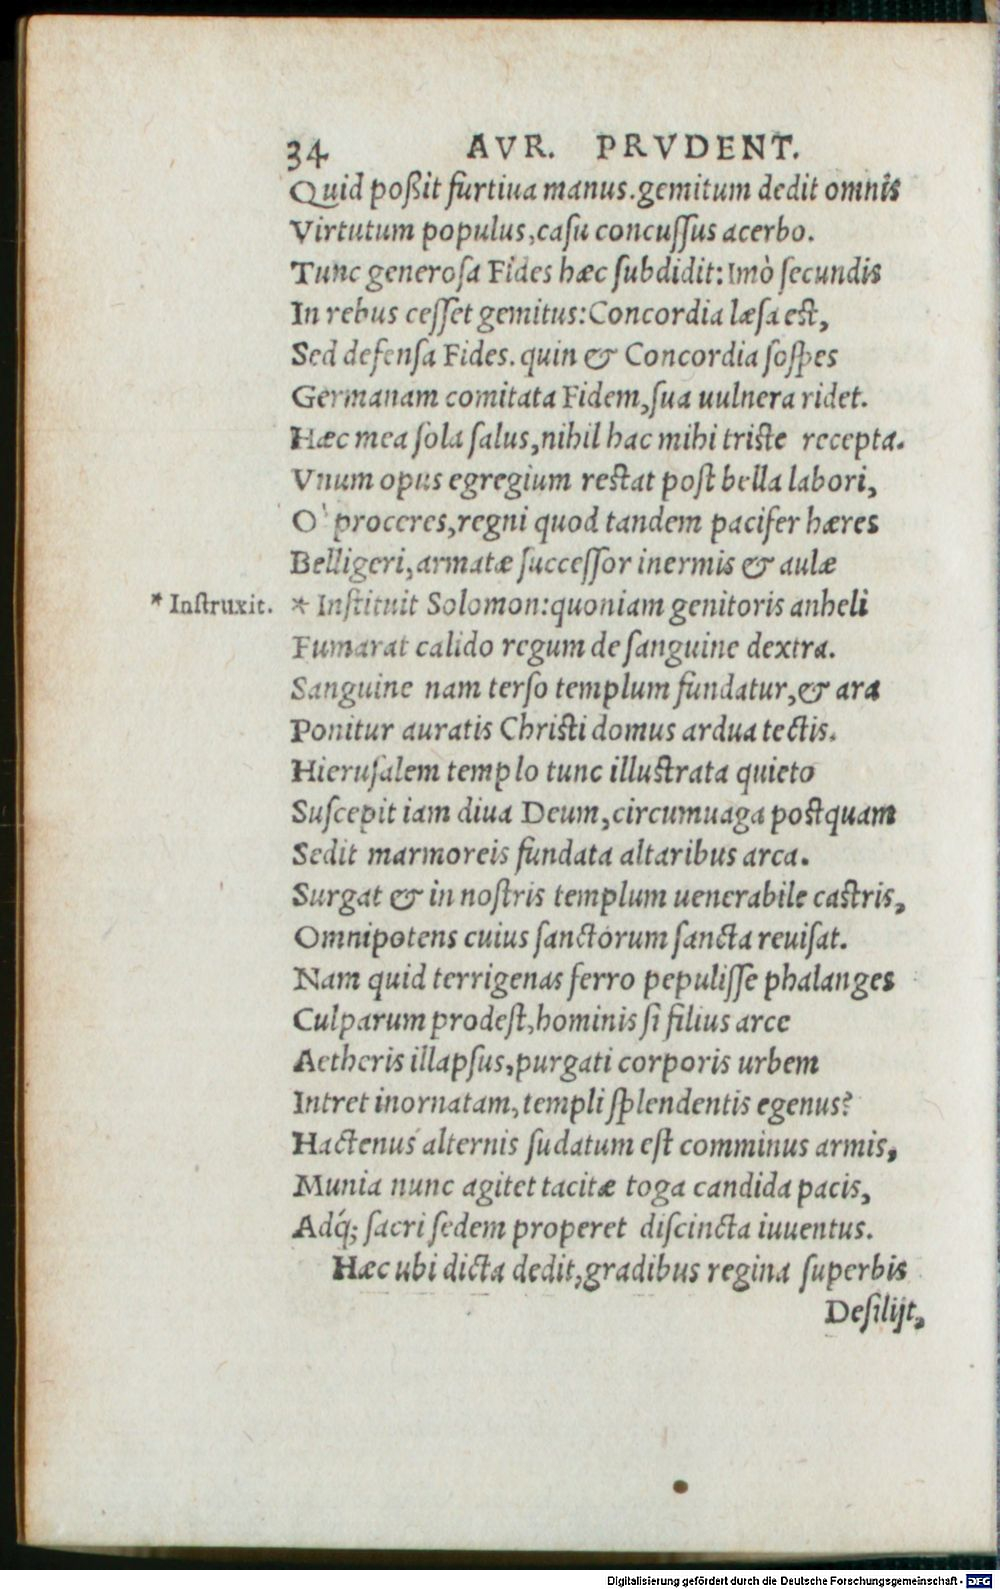 34 AVR. PRVDENT.
Quid poßit furtiua manus. gemitum dedit omnis
Virtutum populus, casu concussus acerbo.
Tunc generosa Fides hæc subdidit: Imò secundis
In rebus cesset gemitus: Concordia læsa est,
Sed defensa Fides. quin & Concordia sospes
Germanam comitata Fidem, sua uulnera ridet.
Hæc mea sola salus, nihil hac mihi triste recepta.
Vnum opus egregium restat post bella labori,
O` proceres, regni quod tandem pacifer hæres
Belligeri, armatæ successor inermis & aulæ
* Instruxit. * Instituit Solomon: quoniam genitoris anheli
Fumarat calido regum de sanguine dextra.
Sanguine nam terso templum fundatur, & ara
Ponitur auratis Christi domus ardua tectis.
Hierusalem templo tunc illustrata quieto
Suscepit iam diua Deum, circumuaga postquam
Sedit marmoreis fundata altaribus arca.
Surgat & in nostris templum uenerabile castris,
Omnipotens cuius sanctorum sancta reuisat.
Nam quid terrigenas ferro pepulisse phalanges
Culparum prodest, hominis si filius arce
Aetheris illapsus, purgati corporis urbem
Intret inornatam, templi splendentis egenus?
Hactenus alternis sudatum est comminus armis,
Munia nunc agitet tacitæ toga candida pacis,
Adq́; sacri sedem properet discincta iuuentus.
Hæc ubi dicta dedit, gradibus regina superbis
Desilijt,
Digitalisierung gefördert durch die Deutsche Forschungsgemeinschaft - DFG